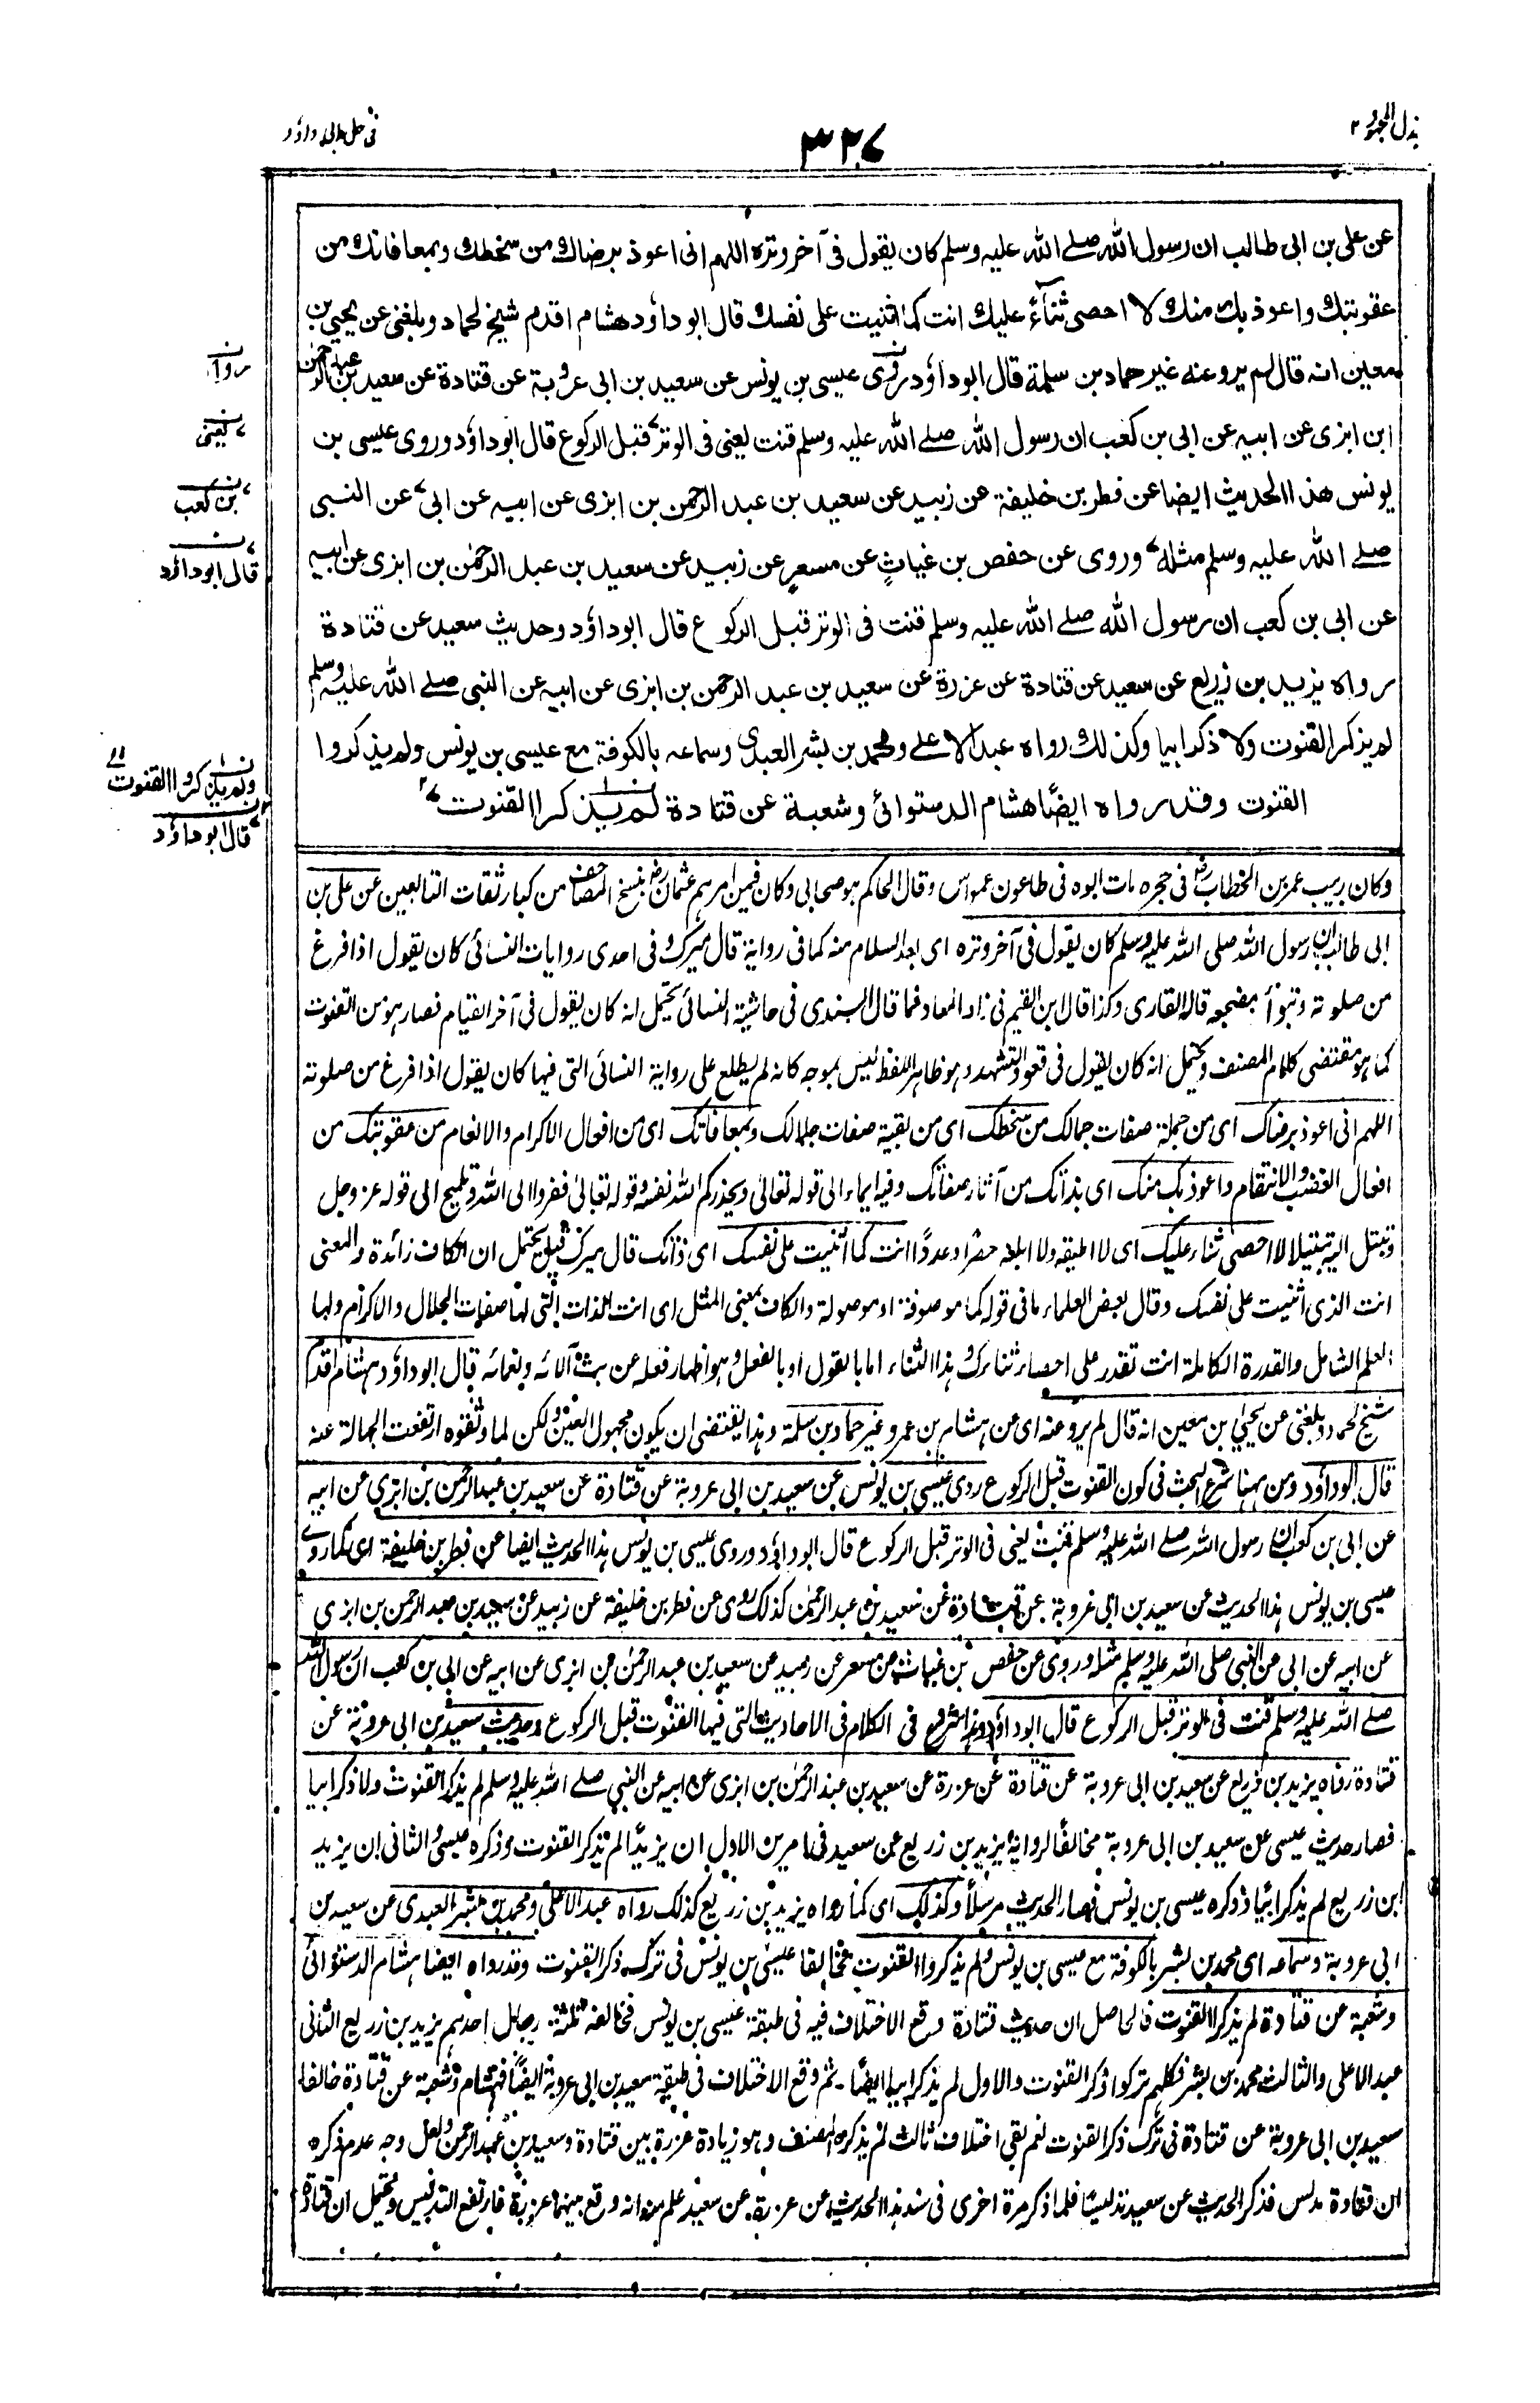 بذل المجهود ٢
٣٢٧
فی حل ابی داؤد
عن علی بن ابی طالب ان رسول الله صلے الله علیہ وسلم کان یقول فی آخر وترہ اللهم انی اعوذ برضاك من سخطك وبمعافاتك من
عقوبتك واعوذ بك منك لا احصی ثناءً علیك انت کما اثنیت علی نفسك قال ابو داؤد هشام اقدم شیخ لحماد وبلغنی عن یحیی بن
معین انه قال لم یرو عنه غیر حماد بن سلمة قال ابو داؤد روی عیسی بن یونس عن سعید بن ابی عروبة عن قتادة عن سعید بن عبد الرحمن
ابن ابزی عن ابیه عن ابی بن کعب ان رسول الله صلے الله علیہ وسلم قنت یعنی فی الوتر قبل الرکوع قال ابو داؤد وروی عیسی بن
یونس هذا الحدیث ایضا عن فطر بن خلیفة عن زبید عن سعید بن عبد الرحمن بن ابزی عن ابیه عن ابی عن النبی
صلے الله علیہ وسلم مثله وروی عن حفص بن غیاث عن مسعر عن زبید عن سعید بن عبد الرحمٰن بن ابزی عن ابیه
عن ابی بن کعب ان رسول الله صلے الله علیہ وسلم قنت فی الوتر قبل الرکوع قال ابو داؤد وحدیث سعید عن قتادة
رواه یزید بن زریع عن سعید عن قتادة عن عزرة عن سعید بن عبد الرحمن بن ابزی عن ابیه عن النبی صلے الله علیہ وسلم
لم یذکر القنوت ولا ذکر ابیا وکذلك رواه عبد الاعلے ومحمد بن بشر العبدی وسماعه بالکوفة مع عیسی بن یونس ولم یذکروا
القنوت وقد رواه ایضًا هشام الدستوائی وشعبة عن قتادة لم یذکرا القنوت
روا
یعنی
بن کعب
قال ابو داؤد
ولم یذکروا القنوت
قال ابو داؤد
وکان ربیب عمر بن الخطاب رض فی حجره مات ابوه فی طاعون عمواس وقال الحاکم هو صحابی وکان فیمن امرهم عثمان رض بنسخ المصاحف من کبار ثقات التابعین عن علی بن
ابی طالب ان رسول الله صلی الله علیہ وسلم کان یقول فی آخر وتره ای بعد السلام منه کما فی روایة قال میرک و فی احدی روایات النسائی کان یقول اذا فرغ
من صلوته وتبوأ مضجعه قاله القاری وکذا قال ابن القیم فی زاد المعاد فما قال السندی فی حاشیة النسائی یحتمل انه کان یقول فی آخر القیام فصار هو من القنوت
کما هو مقتضی کلام المصنف ویحتمل انه کان یقول فی قعود التشهد وهو ظاهر اللفظ لیس بموجه کانه لم یطلع علی روایة النسائی التی فیها کان یقول اذا فرغ من صلوته
اللهم انی اعوذ برضاک ای من جملة صفات جمالک من سخطک ای من بقیة صفات جلالک وبمعافاتک ای من افعال الاکرام والانعام من عقوبتک من
افعال الغضب والانتقام واعوذ بک منک ای بذاتک من آثار صفاتک وفیه ایماء الی قوله تعالی ویحذرکم الله نفسه وقوله تعالی ففروا الی الله وتلمیح الی قوله عز وجل
وتبتل الیه تبتیلا لا احصی ثناء علیک ای لا اطیقه ولا ابلغه حصرا وعددًا انت کما اثنیت علی نفسک ای ذاتک قال میرک قیل یحتمل ان الکاف زائدة والمعنی
انت الذی اثنیت علی نفسک وقال بعض العلماء ما فی قوله کما موصوفة او موصولة والکاف بمعنی المثل ای انت الذات التی لها صفات الجلال والاکرام ولها
العلم الشامل والقدرة الکاملة انت تقدر علی احصاء ثنائک وهذا الثناء اما بالقول او بالفعل وهو اظهار فعله عن بث آلائه ونعمائه قال ابو داؤد هشام اقدم
شیخ لحماد وبلغنی عن یحیی بن معین انه قال لم یرو عنه ای عن هشام بن عمرو غیر حماد بن سلمة وهذا یقتضی ان یکون مجهول العین ولکن لما وثقوه ارتفعت الجهالة عنه
قال ابو داؤد ومن ههنا شرع البحث فی کون القنوت قبل الرکوع روی عیسی بن یونس عن سعید بن ابی عروبة عن قتادة عن سعید بن عبد الرحمن بن ابزی عن ابیه
عن ابی بن کعب ان رسول الله صلے الله علیہ وسلم قنت یعنی فی الوتر قبل الرکوع قال ابو داؤد وروی عیسی بن یونس هذا الحدیث ایضا عن فطر بن خلیفة ای کما روے
عیسی بن یونس هذا الحدیث عن سعید بن ابی عروبة عن قتادة عن سعید بن عبد الرحمٰن کذلک روی عن فطر بن خلیفة عن زبید عن سعید بن عبد الرحمن بن ابزی
عن ابیه عن ابی عن النبی صلی الله علیہ وسلم مثله وروی عن حفص بن غیاث عن مسعر عن زبید عن سعید بن عبد الرحمٰن بن ابزی عن ابیه عن ابی بن کعب ان رسول الله
صلے الله علیہ وسلم قنت فی الوتر قبل الرکوع قال ابو داؤد وهذا شروع فی الکلام فی الاحادیث التی فیها القنوت قبل الرکوع وحدیث سعید بن ابی عروبة عن
قتادة رواه یزید بن زریع عن سعید بن ابی عروبة عن قتادة عن عزرة عن سعید بن عبد الرحمٰن بن ابزی عن ابیه عن النبی صلے الله علیہ وسلم لم یذکر القنوت ولا ذکر ابیا
فصار حدیث عیسی عن سعید بن ابی عروبة مخالفًا لروایة یزید بن زریع عن سعید فی امرین الاول ان یزیدًا لم یذکر القنوت وذکره عیسی والثانی ان یزید
ابن زریع لم یذکر ابیًا وذکره عیسی بن یونس فصار الحدیث مرسلًا وکذلک ای کما رواه یزید بن زریع کذلک رواه عبد الاعلی ومحمد بن بشر العبدی عن سعید بن
ابی عروبة وسماعه ای محمد بن بشر بالکوفة مع عیسی بن یونس ولم یذکروا القنوت مخالفا عیسی بن یونس فی ترک ذکر القنوت وقد رواه ایضا هشام الدستوائی
وشعبة عن قتادة لم یذکرا القنوت فالحاصل ان حدیث قتادة وقع الاختلاف فیه فی طبقة عیسی بن یونس فخالفه ثلثة رجال احدهم یزید بن زریع الثانی
عبد الاعلی والثالث محمد بن بشر فکلهم ترکوا ذکر القنوت والاول لم یذکر ابیا ایضًا - ثم وقع الاختلاف فی طبقة سعید بن ابی عروبة ایضًا فهشام وشعبة عن قتادة خالفا
سعید بن ابی عروبة عن قتادة فی ترک ذکر القنوت نعم بقی اختلاف ثالث لم یذکره المصنف وهو زیادة عزرة بین قتادة وسعید بن عبد الرحمن ولعل وجه عدم ذکره
ان قتادة مدلس فذکر الحدیث عن سعید تدلیسًا فلما ذکر مرة اخری فی سند هذا الحدیث عن عزرة عن سعید علم منه انه وقع بینهما عزرة فارتفع التدلیس ویحتمل ان قتادة